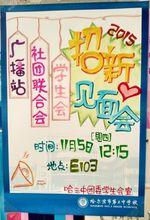 广播站
社团联合会
学生会
2015
招新
见面会
时间:11月5日 12:15
[周四]
地点:E103
哈三中团委学生会宣
哈尔滨市第三中学校